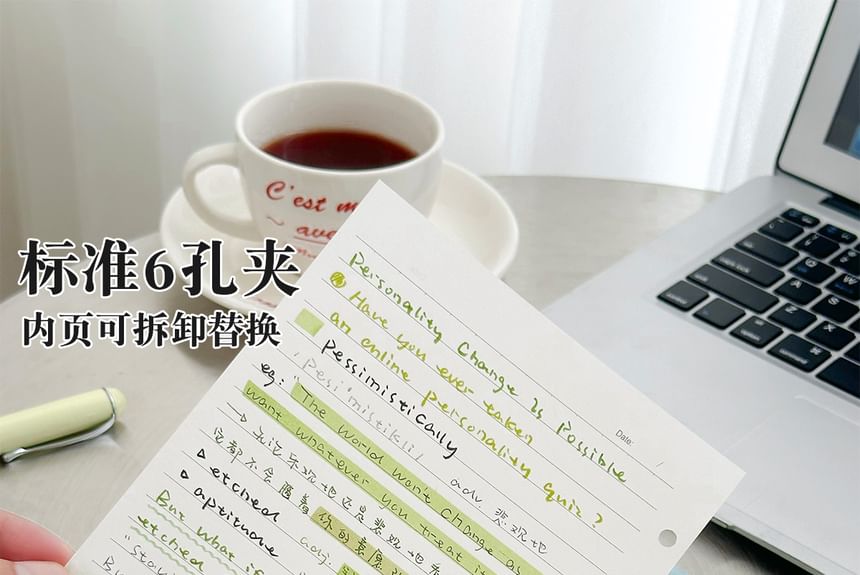 标准6孔夹
内页可拆卸替换
C'est m
ave
Date: / /
Personality Change is Possible
Have you ever taken
an online personality quiz?
Pessimistically
/ˌpesiˈmistikli/ adv. 悲观地
eg: "The World Won't Change as
want whatever you treat it
→ 无论乐观地还是悲观地看
它都不会随着你的意愿
etched
aptitude
But what if
etched
"Stay
caps lock
shift
control
option
command